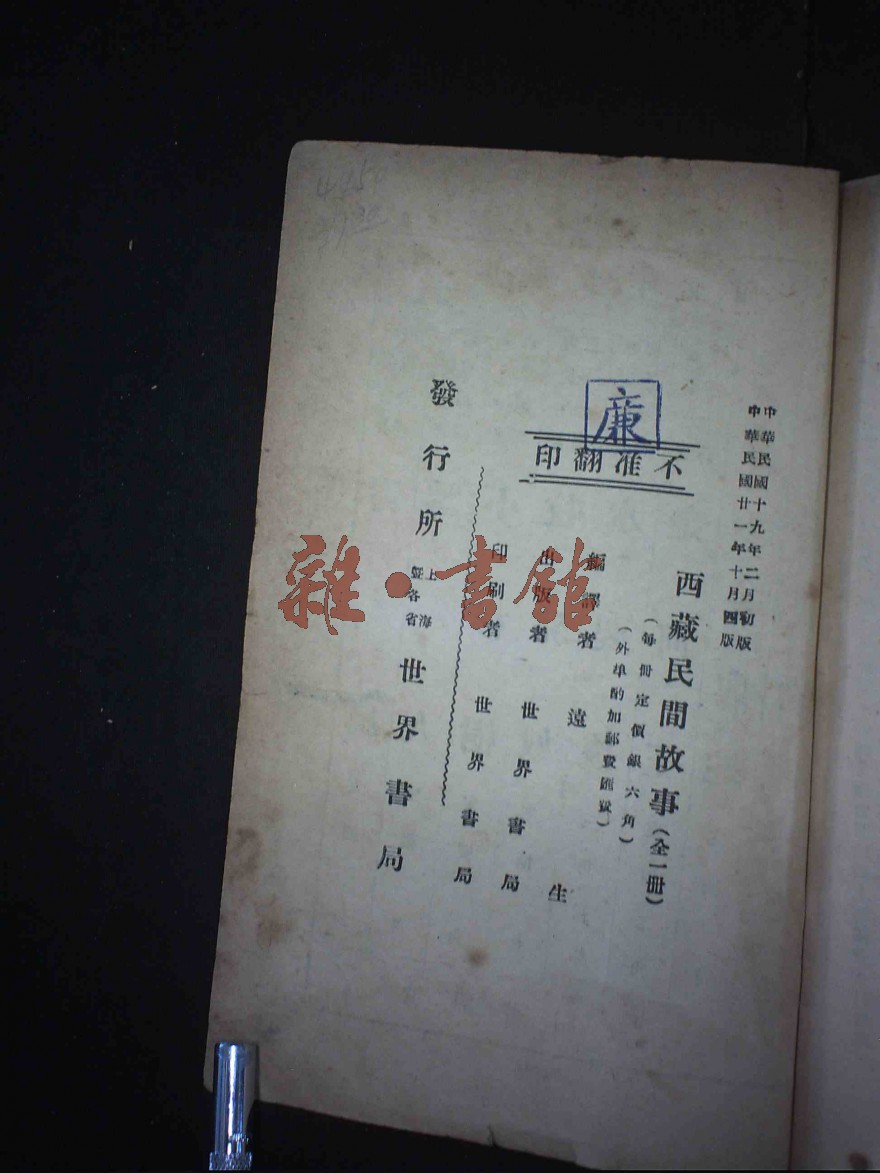 中華民國十九年二月初版
中華民國廿一年十月四版
西藏民間故事(全一册)
(每册定價銀六角)
(外埠酌加郵費匯費)
廉
不准翻印
編譯者 遠生
出版者 世界書局
印刷者 世界書局
發行所 上海暨各省 世界書局
雜·書館